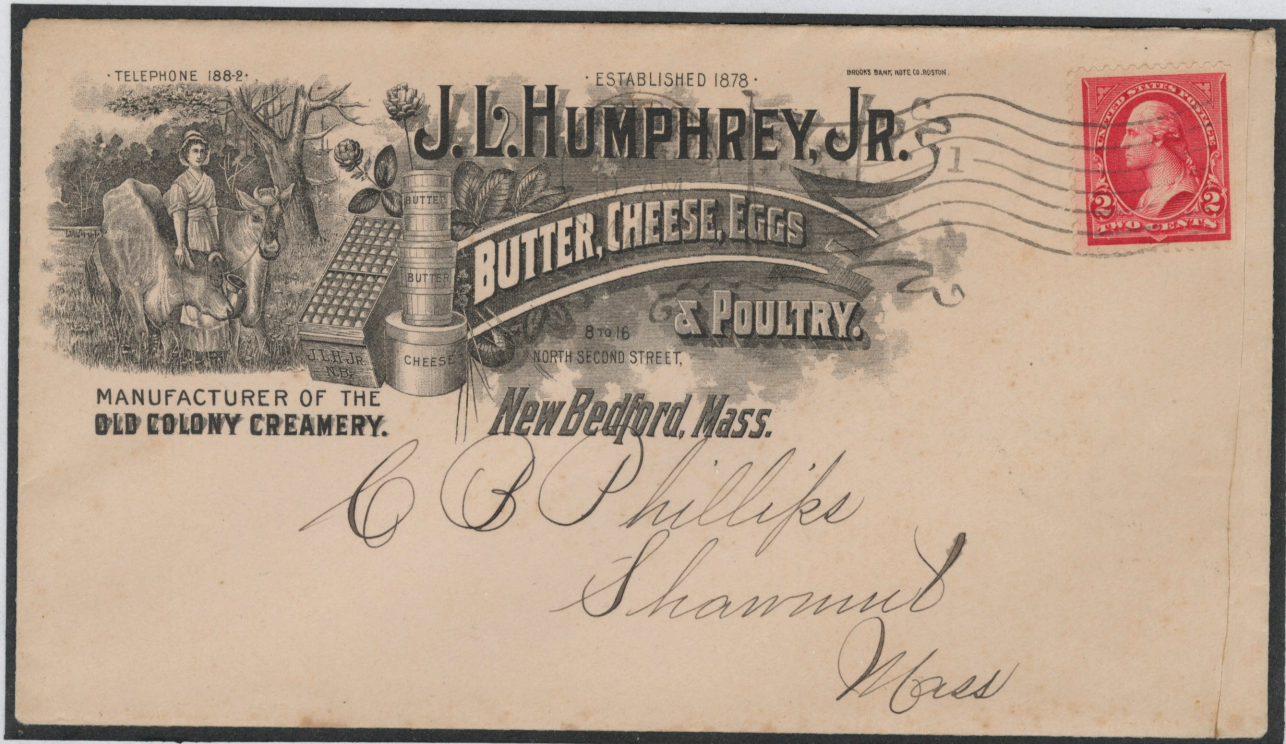 · TELEPHONE 188-2 ·
· ESTABLISHED 1878 ·
BROOKS BANK NOTE CO. BOSTON.
J. L. HUMPHREY, JR.
BUTTER, CHEESE, EGGS
& POULTRY.
BUTTER
BUTTER
CHEESE
J.L.H. JR.
N.B.
8 TO 16
NORTH SECOND STREET,
New Bedford, Mass.
MANUFACTURER OF THE
OLD COLONY CREAMERY.
1
UNITED STATES POSTAGE
2 2
TWO CENTS
C B Phillips
Shawmut
Mass